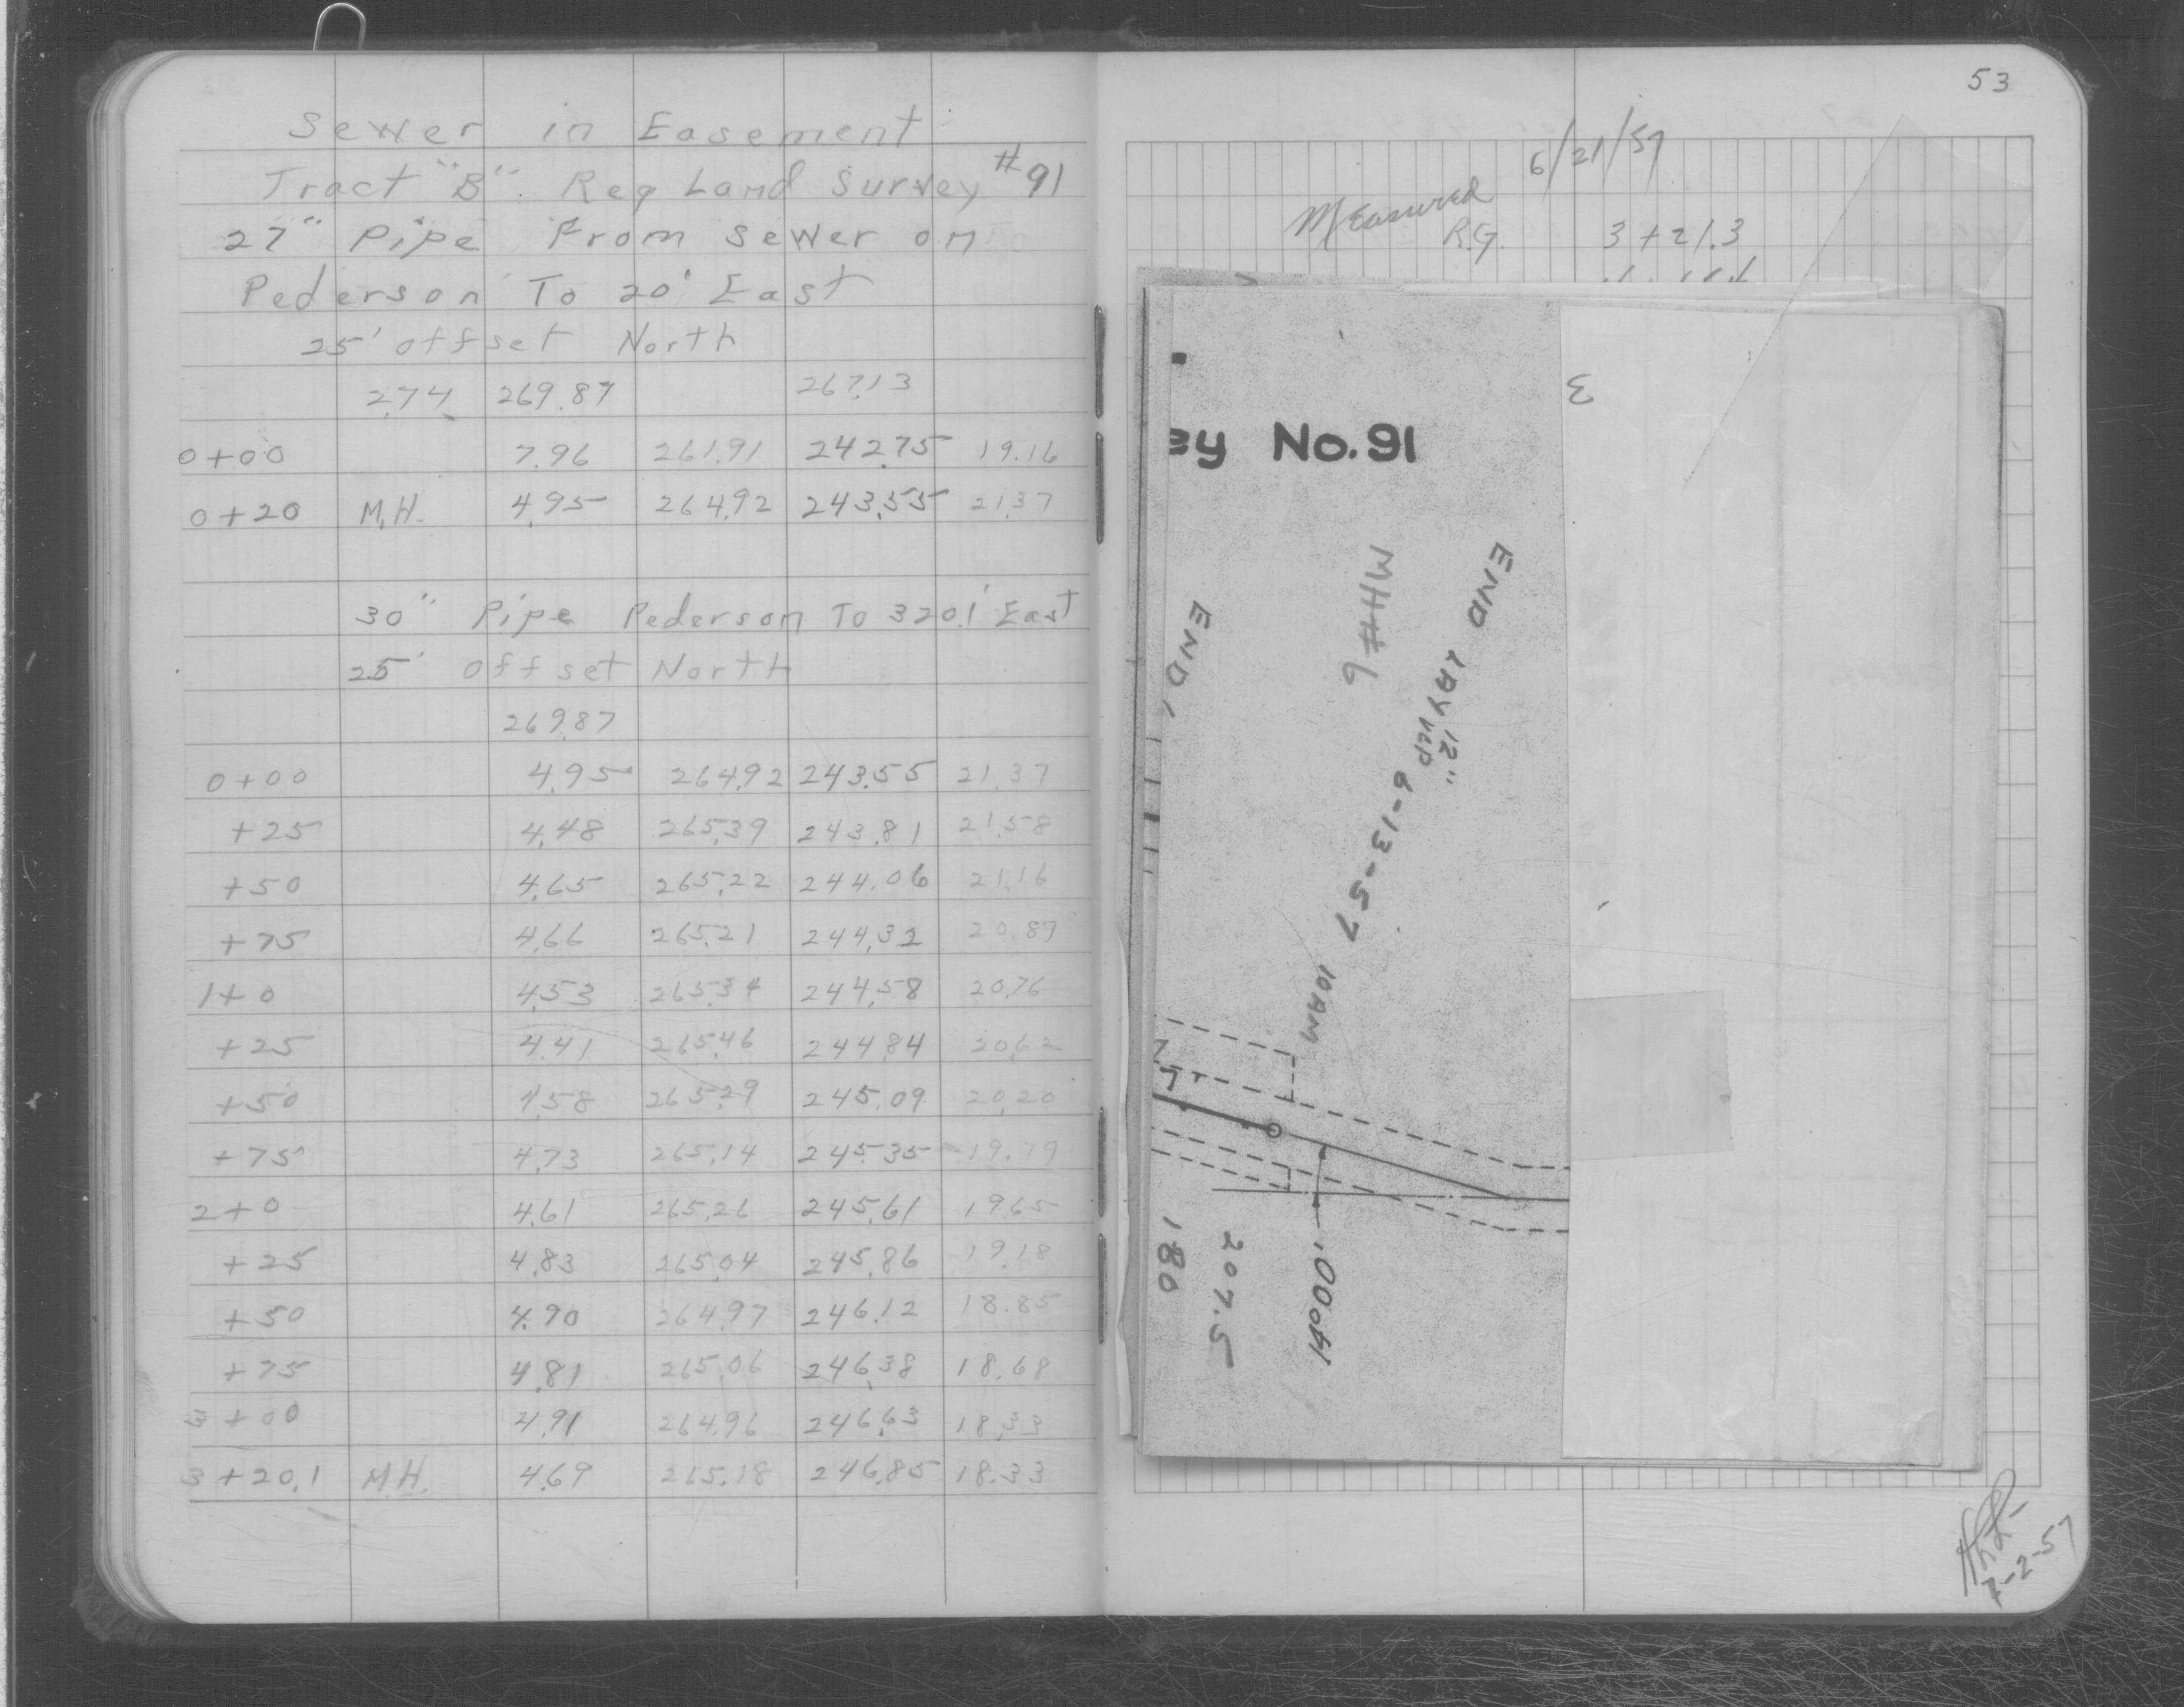 Sewer in Easement
Tract "B" Reg Land Survey #91
27" Pipe From Sewer on
Pederson To 20' East
25' offset North
2.74 269.87 267.13
0+00 7.96 261.91 242.75 19.16
0+20 M.H. 4.95 264.92 243.55 21.37
30" Pipe Pederson To 320.1' East
25' Offset North
269.87
0+00 4.95 264.92 243.55 21.37
+25 4.48 265.39 243.81 21.58
+50 4.65 265.22 244.06 21.16
+75 4.66 265.21 244.32 20.89
1+0 4.53 265.34 244.58 20.76
+25 4.41 265.46 244.84 20.62
+50 4.58 265.29 245.09 20.20
+75 4.73 265.14 245.35 19.79
2+0 4.61 265.26 245.61 19.65
+25 4.83 265.04 245.86 19.18
+50 4.90 264.97 246.12 18.85
+75 4.81 265.06 246.38 18.68
3+00 4.91 264.96 246.63 18.33
3+20.1 M.H. 4.69 265.18 246.85 18.33
53
6/21/57
Measured
R.G. 3+21.3
ey No.91
3
END
MH#6
END LAY 12" VCP
6-13-57 10AM
180
207.5
14°00'
7-2-57